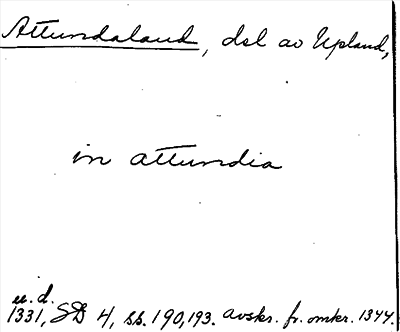 Attundaland, del av Upland,
in attundia
u.d.
1331, SD 4, ss. 190, 193. Avskr. fr. omkr. 1344.